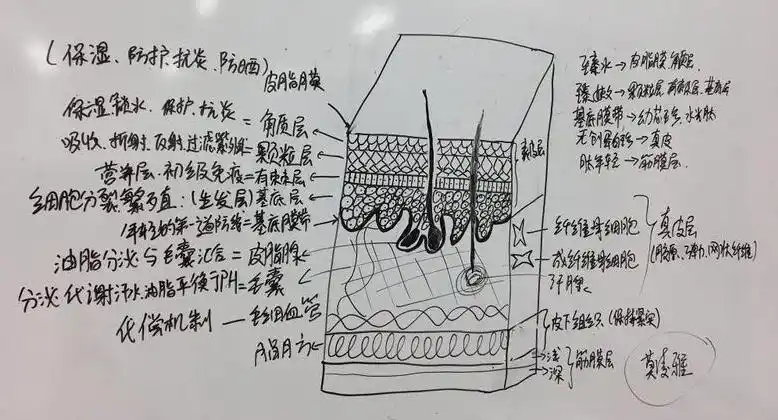 (保湿、防护、抗炎、防晒) 皮脂膜
保湿锁水、保护、抗炎 = 角质层
吸收、折射、反射、过滤紫外线 = 颗粒层
营养层、初级免疫 = 有棘层
细胞分裂繁殖:(生发层)基底层
年轻的第一道防线 = 基底膜带
油脂分泌与毛囊汇合 = 皮脂腺
分泌代谢汗水油脂平衡PH = 毛囊
代偿机制 — 毛细血管
脂肪
表皮层
水 → 皮脂膜、角质层
→ 颗粒层、有棘层、基底层
基底膜带 → 幼
→ 真皮
年轻 → 筋膜层
纤维母细胞
成纤维母细胞
汗腺
真皮层
(胶原、弹力、网状纤维)
皮下组织(保持紧实)
浅
深
筋膜层